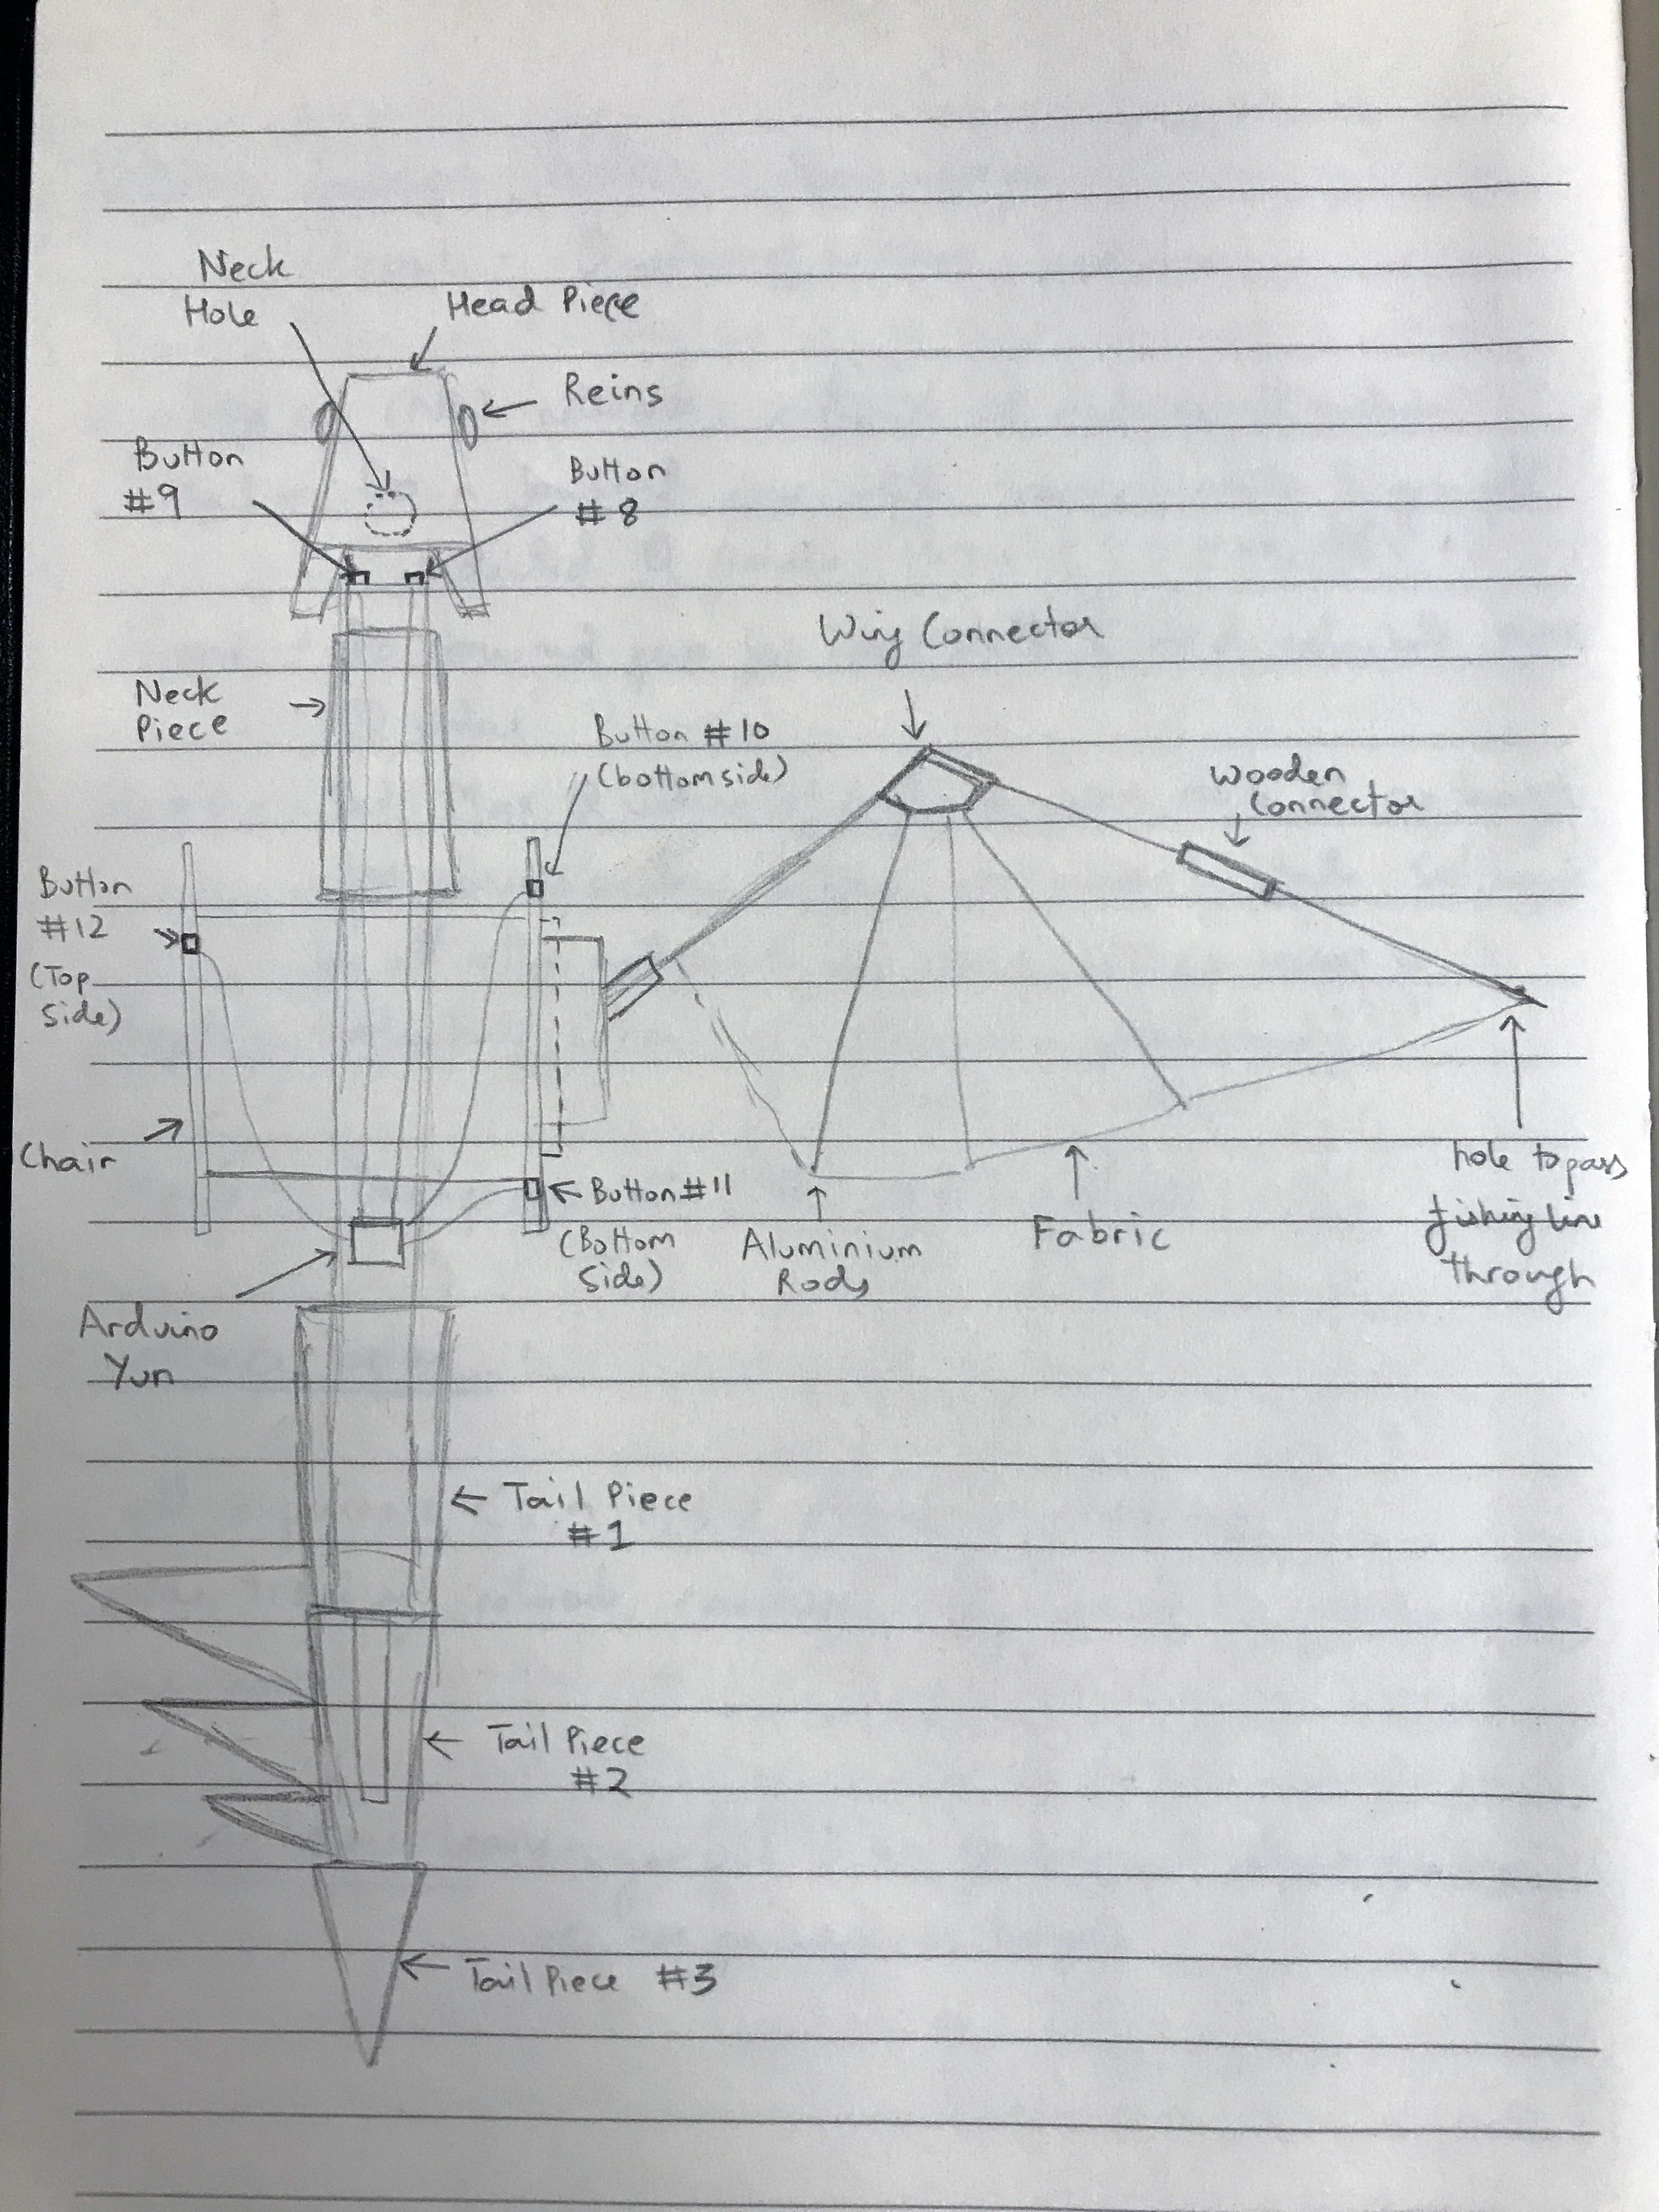 Neck
Hole
Head Piece
Reins
Button
#9
Button
#8
Wing Connector
Neck
Piece
Button #10
(bottom side)
Wooden
Connector
Button
#12
(Top
Side)
Chair
Button #11
(Bottom
Side)
Aluminium
Rods
Fabric
hole to pass
fishing line
through
Arduino
Yun
Tail Piece
#1
Tail Piece
#2
Tail Piece #3